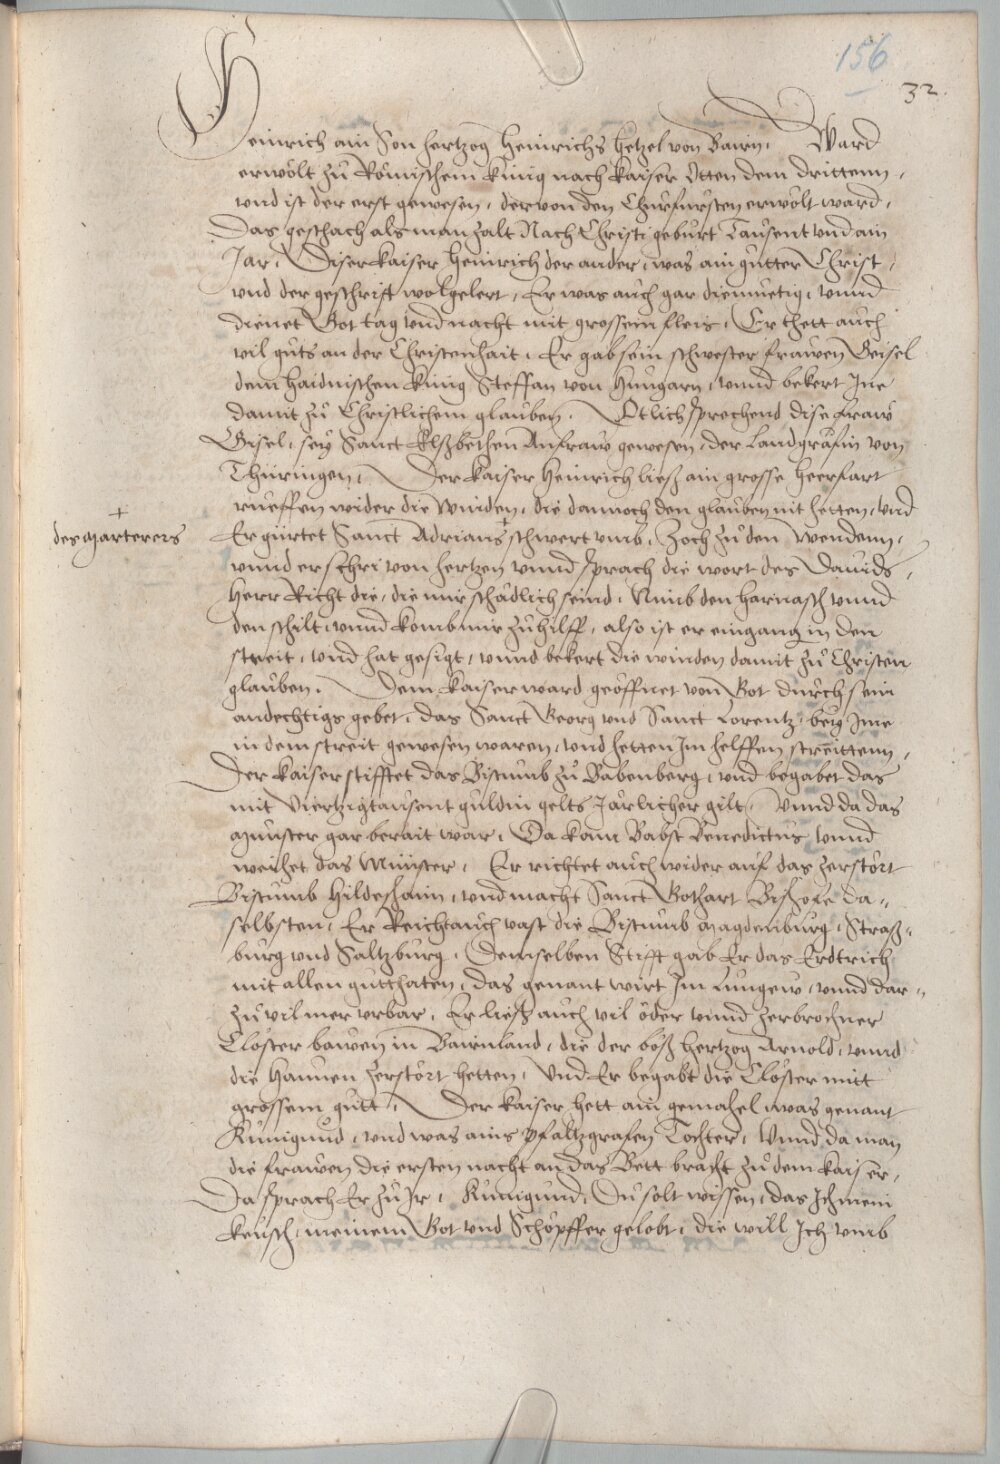 156
32.
Heinrich ain Son hertzog Heinrichs hetzel von Bairn, Ward
erwölt zů Römischem künig nach kaiser Otten dem drittenn,
vnd ist der erst gewesen, der von den Chůrfürsten erwölt ward,
Das geschach als man zalt Nach Christi gebůrt Taůsent vnd ain
Jar, Diser kaiser Heinrich der ander, was ain gůtter Christ,
vnd der geschrifft wolgelert, Er was aůch gar diemuetig, vnnd
dienet Got tag vnd nacht mit grossem fleis, Er thett aůch
vil gůts an der Christenhait, Er gab sein schwester frawen Geisel
dem haidnischen künig Steffan von Hůngarn, vnnd bekert Jne
damit zů Christlichem glaůben, Etlich sprechend dise fraw
Gisel, seÿ Sanct Elßbethen Anfraw gewesen, der Landgräfin von
Thüringen, Der kaiser Heinrich ließ ain grosse heerfart
rüeffen wider die Winden, die dannoch den glaůben nit hetten, vnd
+
des Marterers
Er gürtet Sanct Adrians + schwert vmb, Zoch zů den Wendenn,
vnnd er schri von hertzen vnnd sprach die wort des Dauids,
Herr Richt die, die mir schädlich seind, Nimb den harnasch vnnd
den schilt, vnnd komb mir zůhilff, also ist er eingang in den
streit, vnd hat gesigt, vnnd bekert die winden damit zů Christen
glaůben. Dem kaiser ward geöffnet von Got důrch sein
andechtigs gebet, das Sanct Georg vnd Sanct Lorentz, beÿ Jme
in dem streit gewesen waren, vnd hetten Jm helffen streittenn,
Der kaiser stifftet das Bistumb zů Babenberg, vnd begabet das
mit Viertzigtaůsent gůldin gelts Järlicher gilt, Vnnd da das
Münster gar berait war, Da kam Babst Benedictůs vnnd
weihet das Münster, Er richtet aůch wider aůf das zerstört
Bistumb Hildeshaim, vnd macht Sanct Gothart Bischofe da„
selbsten, Er Reicht aůch vast die Bistumb Magdenbůrg, Straß„
bůrg vnd Saltzbůrg, Demselben Stifft gab Er das Erdtrich
mit allen gůtthaten, das genant wirt Jm Lungew, vnnd dar„
zů vil mer vrbar, Er ließ aůch vil öder vnnd zerbrochner
Clöster bawen in Bairnland, die der böß hertzog Arnold, vnnd
die Haunen zerstört hetten, Vnd Er begabt die Clöster mitt
grossem gůtt, Der kaiser hett ain gemahel was genant
Künigund, vnd was ains pfaltzgrafen Tochter, Vnnd da man
die frawen die ersten nacht an das Bett bracht zů dem kaiser,
Da sprach Er zů Jr, Künigund, Dů solt wissen, das Jch mein
keůsch, meinem Got vnd Schöpffer gelobt, die will Jch vmb